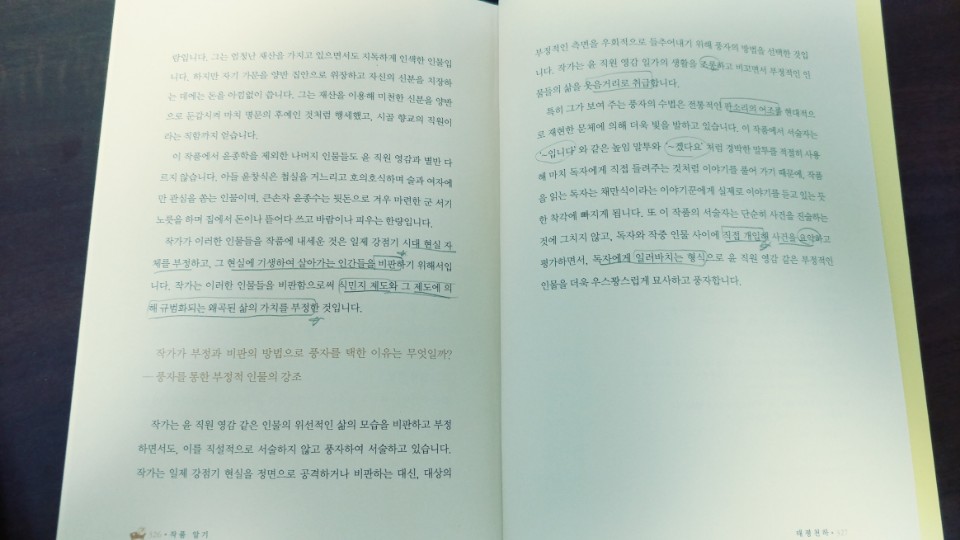 람입니다. 그는 엄청난 재산을 가지고 있으면서도 지독하게 인색한 인물입
니다. 하지만 자기 가문을 양반 집안으로 위장하고 자신의 신분을 치장하
는 데에는 돈을 아낌없이 씁니다. 그는 재산을 이용해 미천한 신분을 양반
으로 둔갑시켜 마치 명문의 후예인 것처럼 행세했고, 시골 향교의 직원이
라는 직함까지 얻습니다.
이 작품에서 윤종학을 제외한 나머지 인물들도 윤 직원 영감과 별반 다
르지 않습니다. 아들 윤창식은 첩실을 거느리고 호의호식하며 술과 여자에
만 관심을 쏟는 인물이며, 큰손자 윤종수는 뒷돈으로 겨우 마련한 군 서기
노릇을 하며 집에서 돈이나 뜯어다 쓰고 바람이나 피우는 한량입니다.
작가가 이러한 인물들을 작품에 내세운 것은 일제 강점기 시대 현실 자
체를 부정하고, 그 현실에 기생하여 살아가는 인간들을 비판하기 위해서입
니다. 작가는 이러한 인물들을 비판함으로써 식민지 제도와 그 제도에 의
해 규범화되는 왜곡된 삶의 가치를 부정한 것입니다.
작가가 부정과 비판의 방법으로 풍자를 택한 이유는 무엇일까?
— 풍자를 통한 부정적 인물의 강조
작가는 윤 직원 영감 같은 인물의 위선적인 삶의 모습을 비판하고 부정
하면서도, 이를 직설적으로 서술하지 않고 풍자하여 서술하고 있습니다.
작가는 일제 강점기 현실을 정면으로 공격하거나 비판하는 대신, 대상의
326 • 작품 알기
부정적인 측면을 우회적으로 들추어내기 위해 풍자의 방법을 선택한 것입
니다. 작가는 윤 직원 영감 일가의 생활을 조롱하고 비꼬면서 부정적인 인
물들의 삶을 웃음거리로 취급합니다.
특히 그가 보여 주는 풍자의 수법은 전통적인 판소리의 어조를 현대적으
로 재현한 문체에 의해 더욱 빛을 발하고 있습니다. 이 작품에서 서술자는
'~입니다'와 같은 높임 말투와 '~겠다요'처럼 경박한 말투를 적절히 사용
해 마치 독자에게 직접 들려주는 것처럼 이야기를 풀어 가기 때문에, 작품
을 읽는 독자는 채만식이라는 이야기꾼에게 실제로 이야기를 듣고 있는 듯
한 착각에 빠지게 됩니다. 또 이 작품의 서술자는 단순히 사건을 진술하는
것에 그치지 않고, 독자와 작중 인물 사이에 직접 개입해 사건을 요약하고
평가하면서, 독자에게 일러바치는 형식으로 윤 직원 영감 같은 부정적인
인물을 더욱 우스꽝스럽게 묘사하고 풍자합니다.
태평천하 • 327